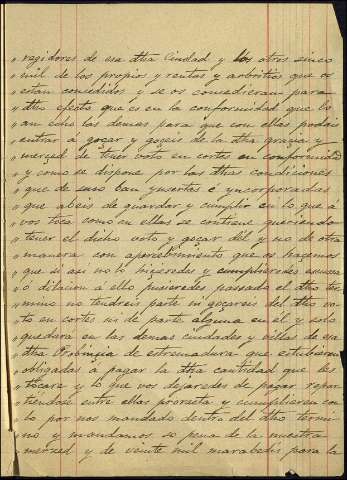 " regidores de esa dha Ciudad y los otros sinco
" mil de los propios y rentas y arbitrios que os
" estan consedidos y se os consedieran para
" dho efecto que es en la conformidad que lo
" an esto los demas para que con ellas podais
" entrar á goçar y goçeis de la dha gracia y
" merced de tener voto en cortes en conformidad
" y como se dispone por las dhas condiciones
" que de suso ban ynsertas é yncorporadas
" que abeis de guardar y cumplir en lo que á
" vos toca como en ellas se contiene queriendo
" tener el dicho voto y goçar dél y no de otra
" manera con apercibimiento que os hacemos
" que si asi no lo hiçeredes y cumplieredes
" ó dilacion á ello pusieredes passado el dho ter
" mino no tendreis parte ni goçareis del dho vo
" to en cortes ni de parte alguna en él y solo
" quedara en las demas ciudades y villas de esa
" dha Probinçia de estremadura que estubieren
" obligadas á pagar la dha cantidad que les
" tocare y lo que vos dejaredes de pagar repar
" tiendose entre ellas prorrata y cumplieren con
" lo por nos mandado dentro del dho termi
" no y mandamos so pena de la nuestra
" merzed y de veinte mil marabedis para la